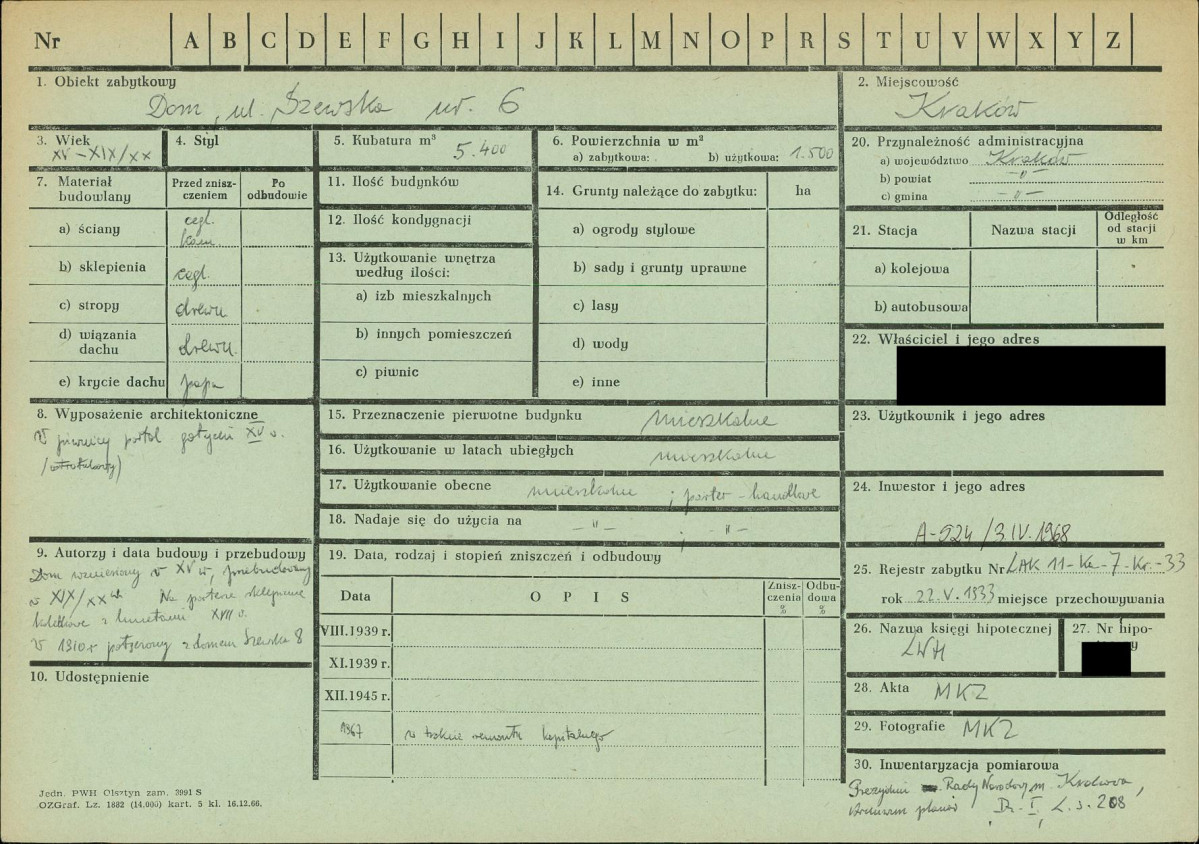 Nr A B C D E F G H I J K L M N O P R S T U V W X Y Z
1. Obiekt zabytkowy
Dom, ul. Szewska nr. 6
2. Miejscowość
Kraków
3. Wiek
XV-XIX/XX
4. Styl
5. Kubatura m³
5.400
6. Powierzchnia w m²
a) zabytkowa: b) użytkowa: 1.500
7. Materiał budowlany
Przed zniszczeniem
Po odbudowie
a) ściany
cegl. kam
b) sklepienia
cegl.
c) stropy
drewn
d) wiązania dachu
drewn.
e) krycie dachu
papa
8. Wyposażenie architektoniczne
W piwnicy portal gotycki XV w.
9. Autorzy i data budowy i przebudowy
Dom wzniesiony w XV w, przebudowany
w XIX/XX w. Na parterze sklepienie
kolebkowe z lunetami XVII w.
W 1910 r połączony z domem Szewska 8
10. Udostępnienie
11. Ilość budynków
12. Ilość kondygnacji
13. Użytkowanie wnętrza według ilości:
a) izb mieszkalnych
b) innych pomieszczeń
c) piwnic
14. Grunty należące do zabytku: ha
a) ogrody stylowe
b) sady i grunty uprawne
c) lasy
d) wody
e) inne
15. Przeznaczenie pierwotne budynku mieszkalne
16. Użytkowanie w latach ubiegłych mieszkalne
17. Użytkowanie obecne mieszkalne ; parter - handlowe
18. Nadaje się do użycia na -"- ; -"-
19. Data, rodzaj i stopień zniszczeń i odbudowy
Data OPIS Zniszczenia % Odbudowa %
VIII.1939 r.
XI.1939 r.
XII.1945 r.
1967 w trakcie remontu kapitalnego
20. Przynależność administracyjna
a) województwo Kraków
b) powiat -"-
c) gmina -"-
21. Stacja Nazwa stacji Odległość od stacji w km
a) kolejowa
b) autobusowa
22. Właściciel i jego adres
23. Użytkownik i jego adres
24. Inwestor i jego adres
A-524/3.IV.1968
25. Rejestr zabytku Nr LAK 11-Ke-7-Kr.-33
rok 22.V.1933 miejsce przechowywania
26. Nazwa księgi hipotecznej
LWH
27. Nr hipo-
28. Akta MKZ
29. Fotografie MKZ
30. Inwentaryzacja pomiarowa
Prezydium Rady Narodowej m. Krakowa,
Archiwum planów, Dz. I, L.s. 208
Jedn. PWH Olsztyn zam. 3991 S
OZGraf. Lz. 1882 (14.000) kart. 5 kl. 16.12.66.